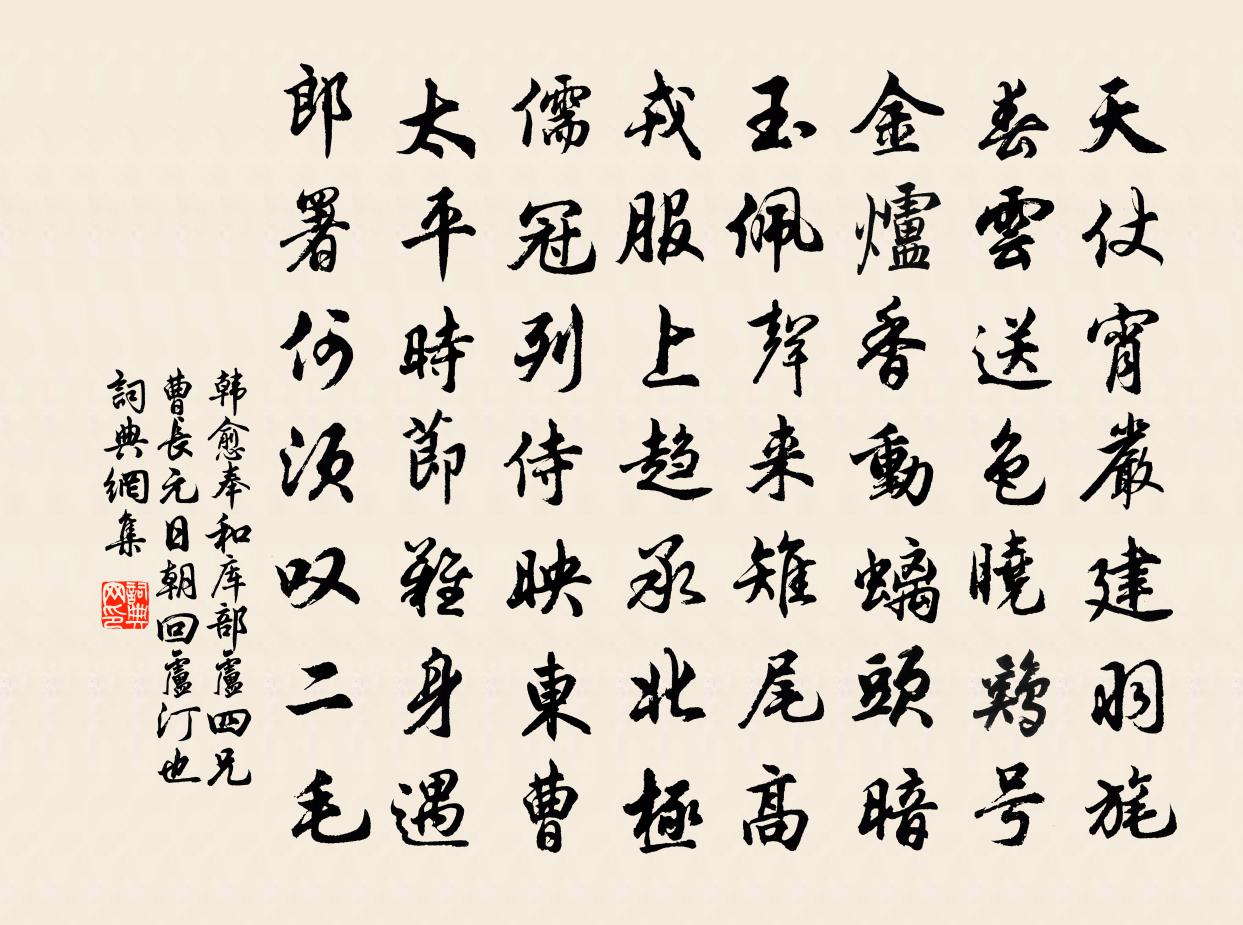 天仗宵嚴建羽旄
春雲送色曉鷄号
金爐香動螭頭暗
玉佩聲来雉尾高
戎服上趋承北極
儒冠列侍映東曹
太平時節難身遇
郎署何須叹二毛
韩愈奉和库部盧四兄
曹長元日朝回盧汀也
詞典網集
詞典
网印